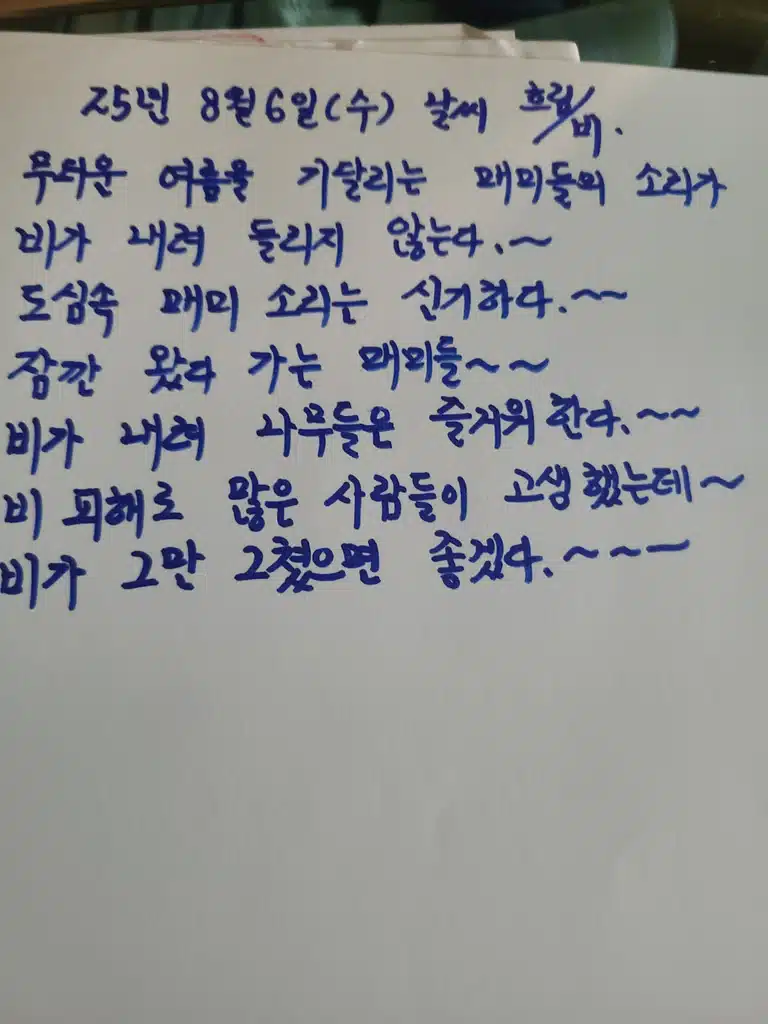 25년 8월 6일(수) 날씨 흐림/비.
무더운 여름을 기달리는 매미들의 소리가
비가 내려 들리지 않는다.~
도심속 매미 소리는 신기하다.~~
잠깐 왔다 가는 매미들~~
비가 내려 나무들은 즐거워 한다.~~
비 피해로 많은 사람들이 고생했는데~
비가 그만 그쳤으면 좋겠다.~~~